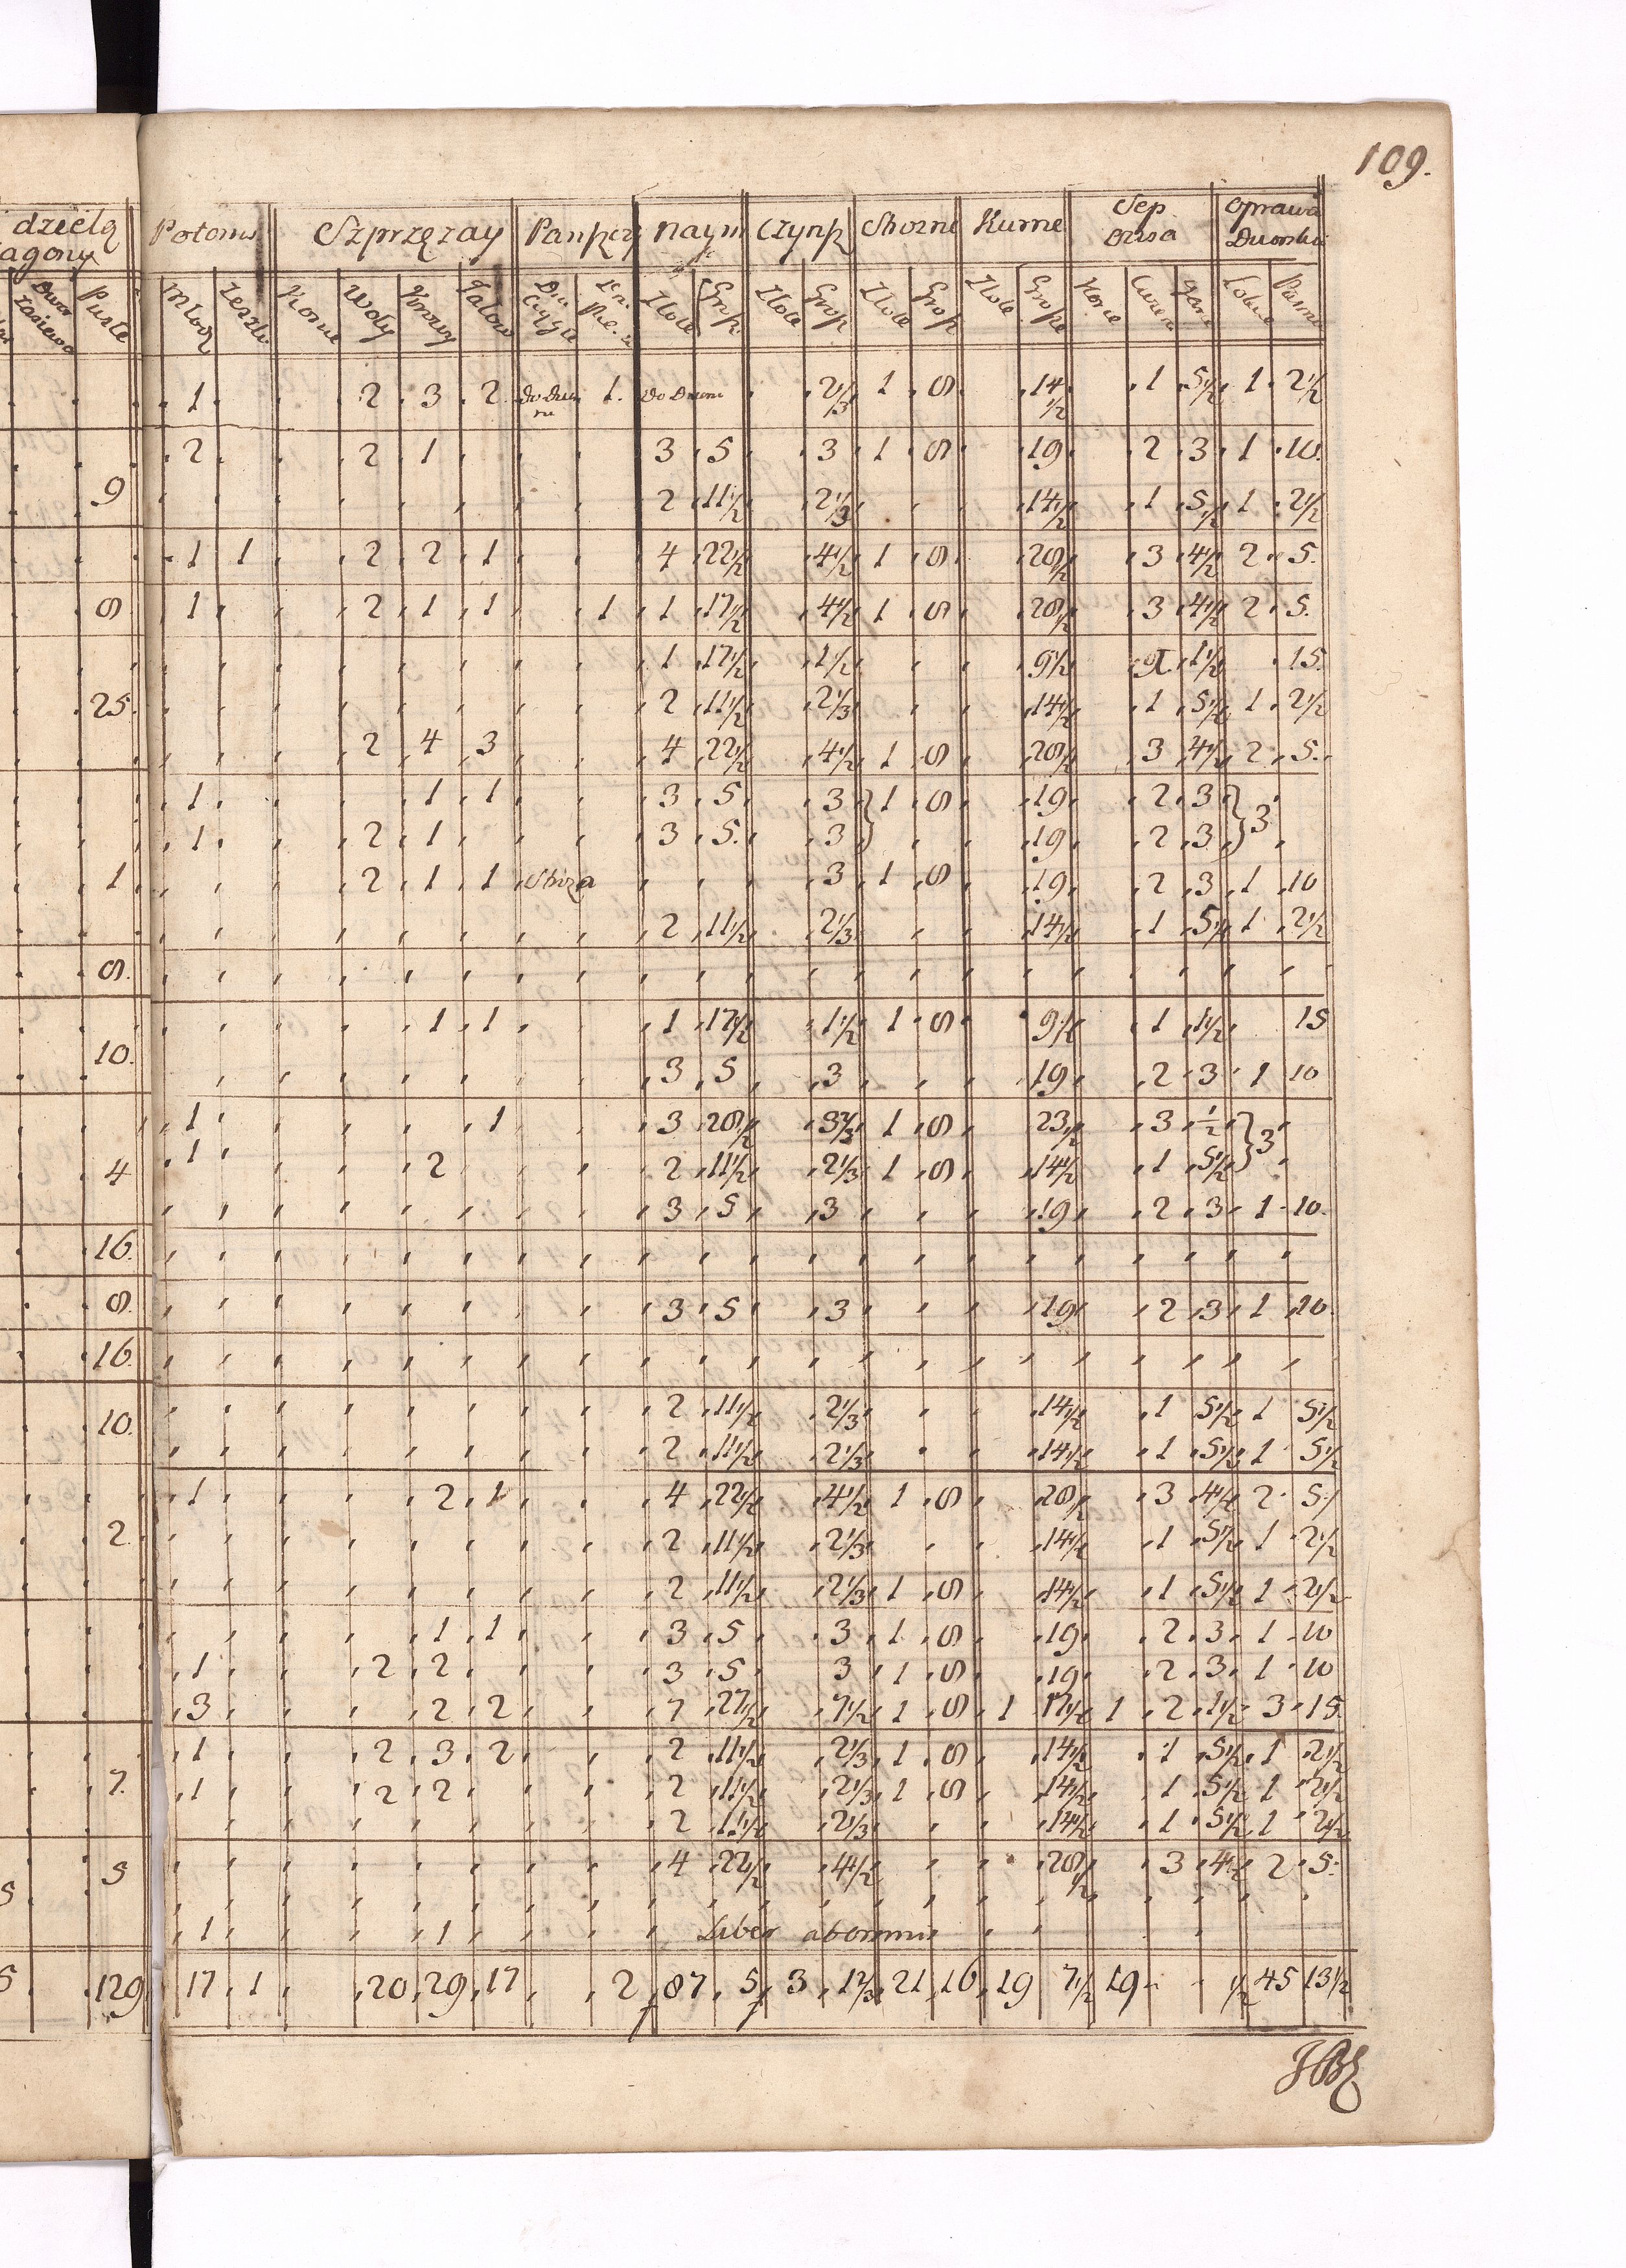 109.
dzielą Potoms Szprzęzay Pańszcz Naym Czynsz Stróżne Kurne Sep Oprawa
agony owsa Dworska
Puste Młodz Zeszli Konie Woły Krowy Jałow Dni Ciągłe Złote Grosz Złote Grosz Złote Grosz Złote Grosze Konie Garnc Łokcie Pasma
1 2 3 2 Do Dwo ru 1. Do Dworu 2⅓ 1 8 14 ½ 1 5½ 1 2½
2 2 1 3 5 3 1 8 19 2 3 1 10.
9 2 11½ 2⅓ 14½ 1 5½ 1 2½
1 1 2 2 1 4 22½ 4½ 1 8 28½ 3 4½ 2 5.
8 1 2 1 1 1 1 17½ 4½ 1 8 28½ 3 4½ 2 5.
1 17½ 1½ 9½ 1½ 15.
25. 2 11½ 2⅓ 14½ 1 5½ 1 2½
2 4 3 4 22½ 4½ 1 8 28½ 3 4½ 2 5.
1 1 1 3 5 3 } 1 8 19 2 3 } 3
1 2 1 3 5. 3 19 2 3
1 2 1 1 3 1 8 19 2 3 1 10
2 11½ 2⅓ 14½ 1 5½ 1 2½
8.
1 1 1 17½ 1½ 1 8 9½ 1 1½ 15
10. 3 5 3 19 2 3 1 10
1 1 3 28½ 1 8 23½ 3 ½ } 3
4 1 2 2 11½ 2⅓ 1 8 14½ 1 5½
3 5 3 19 2 3 1 10.
16.
8. 3 5 3 19 2 3 1 10.
16.
10. 2 11½ 2⅓ 14½ 1 5½ 1 5½
2 11½ 2⅓ 14½ 1 5½ 1 5½
1 2 1 4 22½ 4½ 1 8 28½ 3 4½ 2 5
2. 2 11½ 2⅓ 14½ 1 5½ 1 2½
2 11½ 2⅓ 1 8 14½ 1 5½ 1 2½
1 1 3 5 3 1 8 19 2 3 1 10
1 2 2 3 5 3 1 8 19 2 3 1 10
3 2 2 7 27½ 7½ 1 8 1 17½ 1 2 1½ 3 15.
1 2 3 2 2 11½ 2⅓ 1 8 14½ 1 5½ 1 2½
7. 1 2 2 2 11½ 2⅓ 1 8 14½ 1 5½ 1 2½
2 11½ 2⅓ 14½ 1 5½ 1 2½
5 4 22½ 4½ 28½ 3 4½ 2 5.
5
1 1 Liber ab omni
5 129 17 1 20 29 17 2 87 5 3 1⅔ 21 16 19 7½ 19 ½ 45 13½